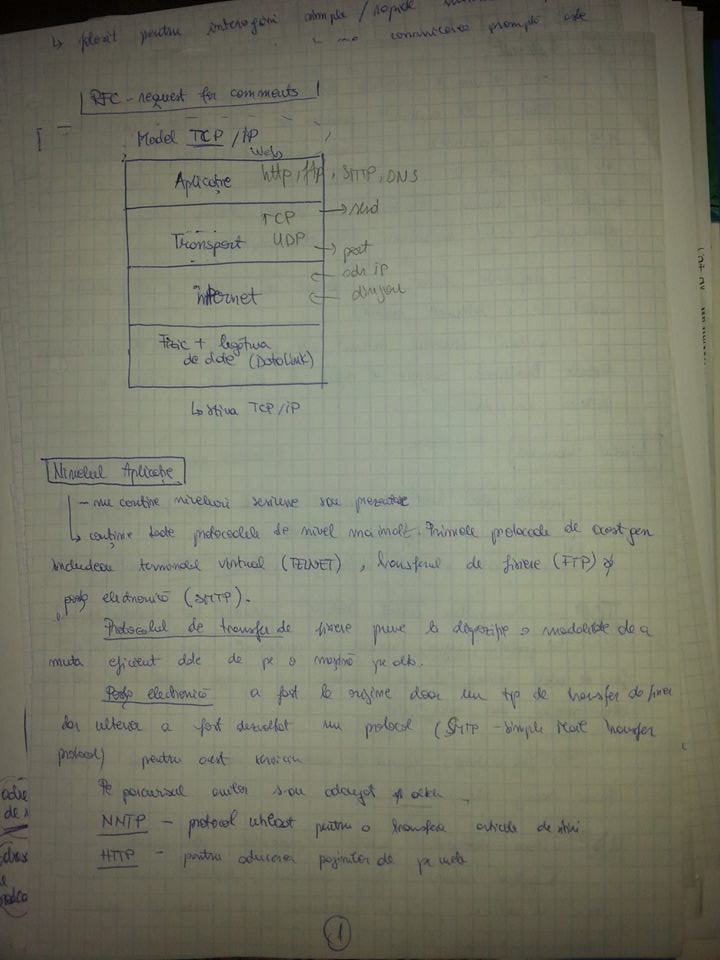 ↳ folosit pentru interogări simple / rapide
comunicarea promptă este
RFC - request for comments
Model TCP/IP
Web
Aplicație http, ftp, SMTP, DNS
TCP → send
Transport UDP → port
adr ip
Internet
Fizic + legătura
de date (DataLink)
↳ stiva TCP/IP
Nivelul Aplicație
- nu conține niveluri sesiune sau prezentare
↳ conține toate protocoalele de nivel mai înalt. Primele protocoale de acest gen
includeau terminalul virtual (TELNET), transferul de fișiere (FTP) și
poșta electronică (SMTP).
Protocolul de transfer de fișiere pune la dispoziție o modalitate de a
muta eficient date de pe o mașină pe alta.
Poșta electronică a fost la origine doar un tip de transfer de fișier
dar ulterior a fost dezvoltat un protocol (SMTP - Simple Mail Transfer
protocol) pentru acest serviciu
Pe parcursul anilor s-au adăugat și altele
NNTP - protocol utilizat pentru a transfera articole de știri
HTTP - pentru aducerea paginilor de pe web
1